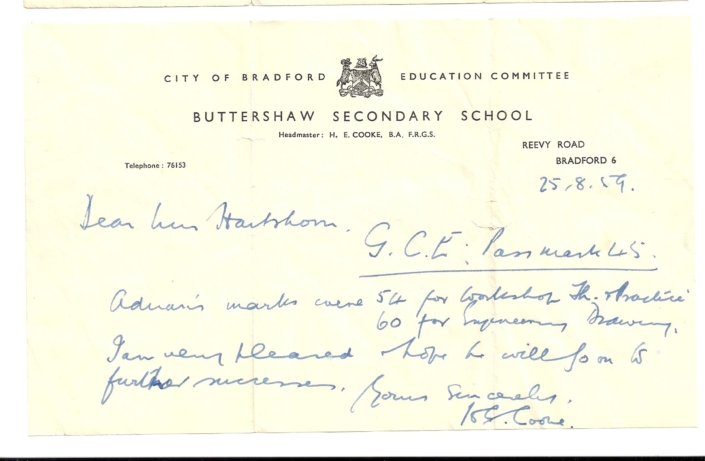 CITY OF BRADFORD EDUCATION COMMITTEE
BUTTERSHAW SECONDARY SCHOOL
Headmaster: H. E. COOKE, B.A., F.R.G.S.
REEVY ROAD
Telephone: 76153 BRADFORD 6
25.8.59.
Dear Mrs Hartshorn.
G.C.E: Passmark 45.
Adrian's marks were 54 for Workshop Th. & Practice
60 for Engineering Drawing.
I am very pleased & hope he will go on to
further successes. Yours Sincerely,
H.E. Cooke.